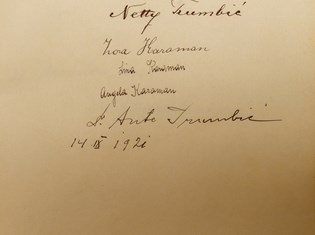 Netty Trumbić
Zora Karaman
Lina Karaman
Angela Karaman
Dr Ante Trumbić
14 IX 1921